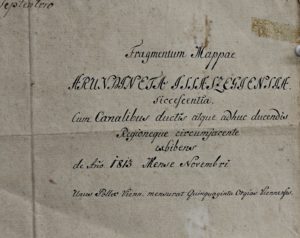 Septentrio
Fragmentum Mappae
ARUNDINETA ILLASZEGIENSIA
siccescentia,
Cum Canalibus ductis atque adhuc ducendis
Regioneque circumjacente
exhibens
de Año 1813 Mense Novembri
Unus Pollex Vienn. mensurat Quinquaginta Orgias Viennenses